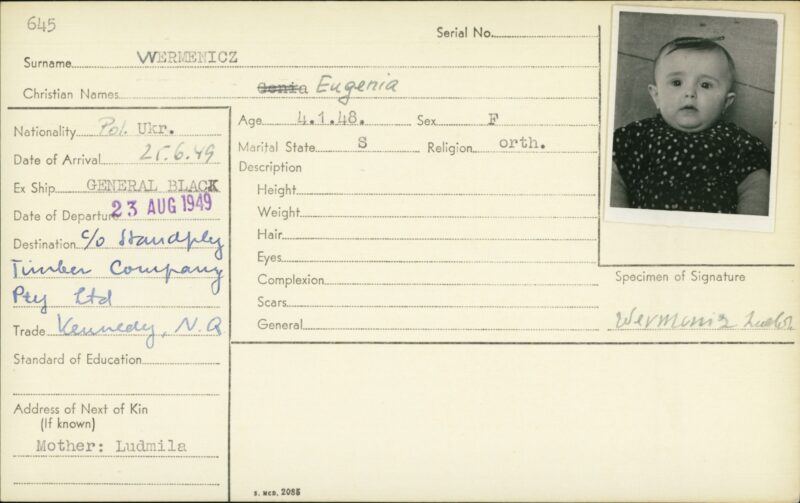 645
Serial No.
Surname WERMENICZ
Christian Names Genia Eugenia
Nationality Pol. Ukr.
Date of Arrival 25.6.49
Ex Ship GENERAL BLACK
Date of Departure 23 AUG 1949
Destination c/o Standply
Timber Company
Pty Ltd
Trade Kennedy, N.Q
Standard of Education
Address of Next of Kin
(If known)
Mother: Ludmila
Age 4.1.48. Sex F
Marital State S Religion orth.
Description
Height
Weight
Hair
Eyes
Complexion
Scars
General
Specimen of Signature
S. MCD. 2085